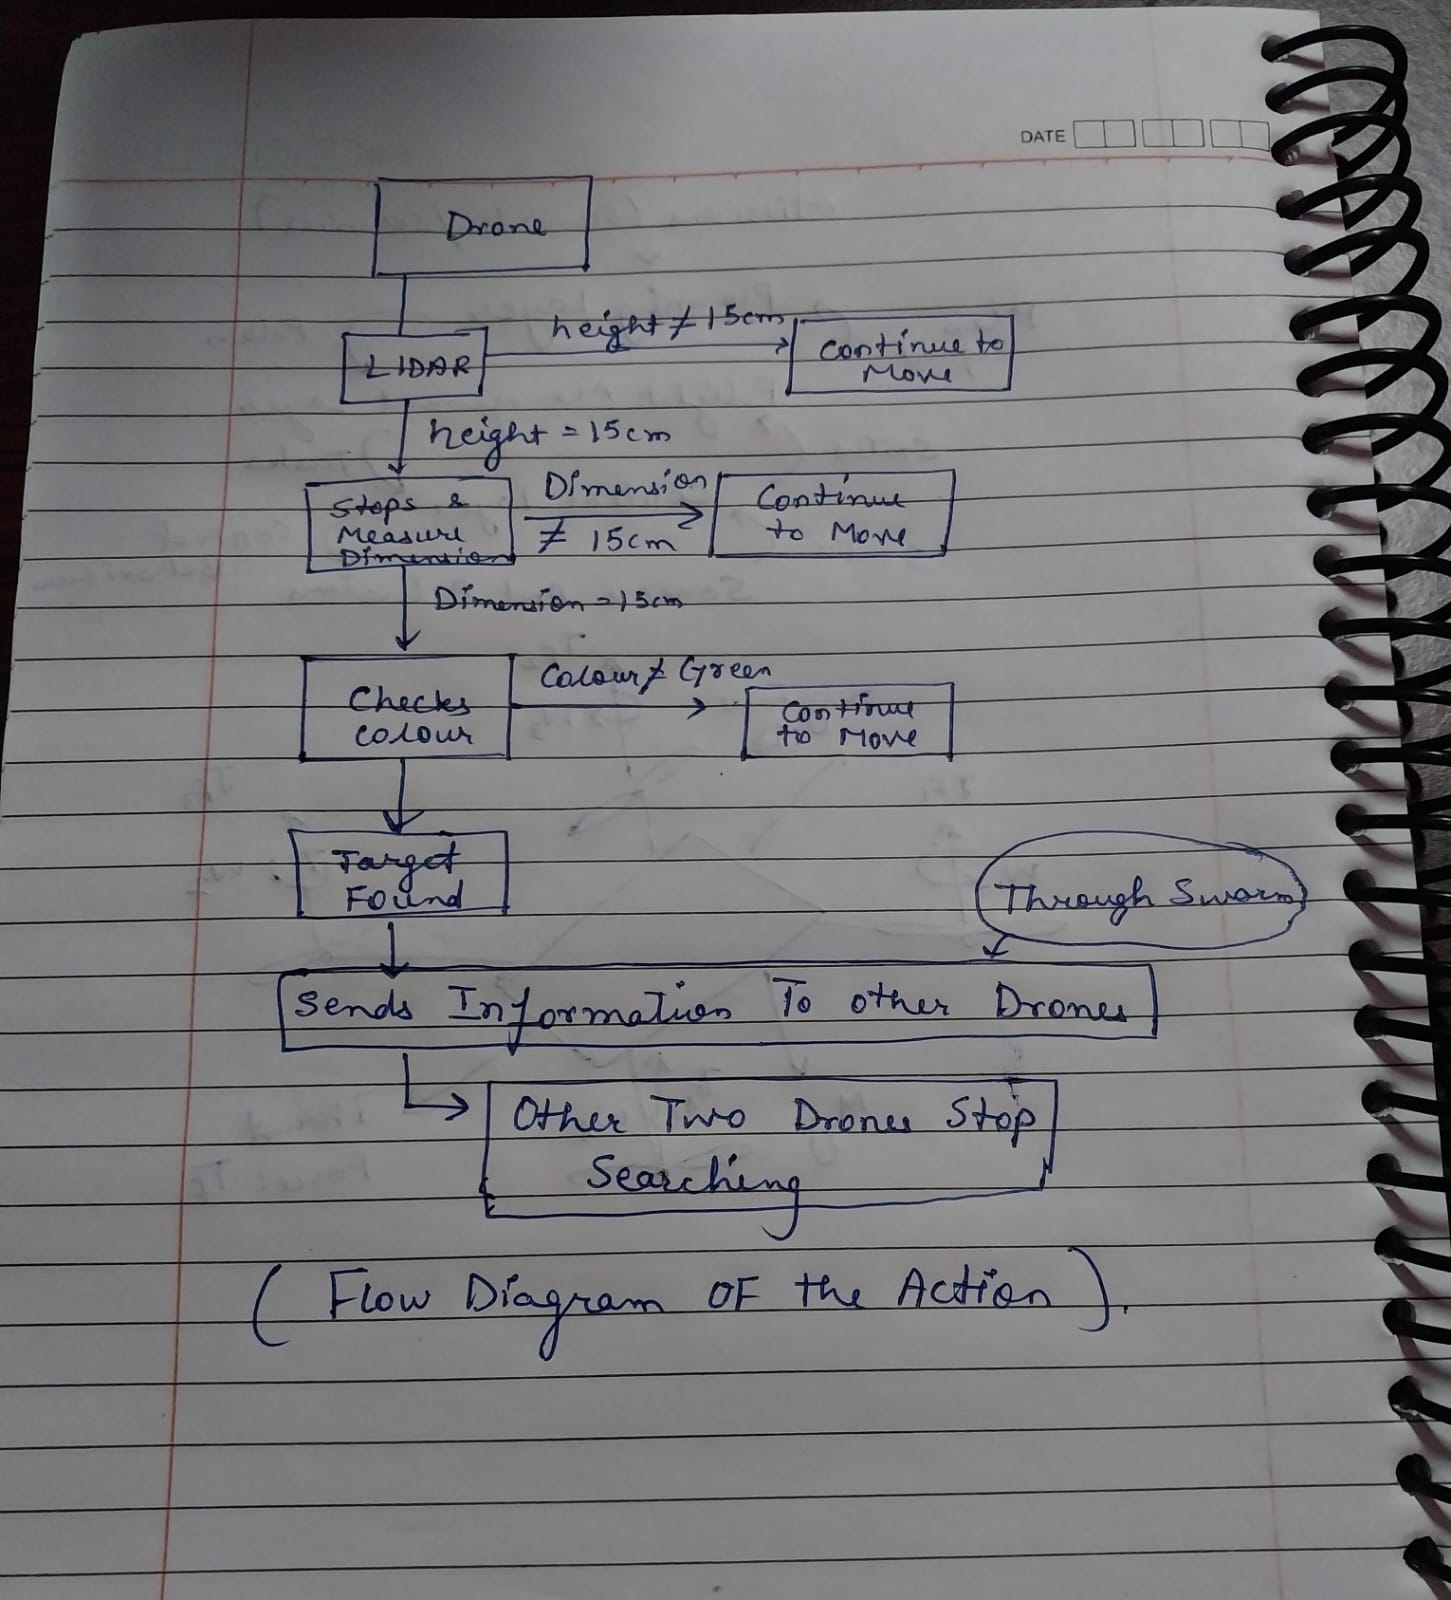 DATE
Drone
LIDAR
height ≠ 15cm
Continue to
Move
height = 15cm
Stops &
Measure
Dimension
Dimension
≠ 15cm
Continue
to Move
Dimension = 15cm
Checks
colour
Colour ≠ Green
Continue
to Move
Target
Found
Through Swarm
Sends Information To other Drones
Other Two Drones Stop
Searching
( Flow Diagram OF the Action ).